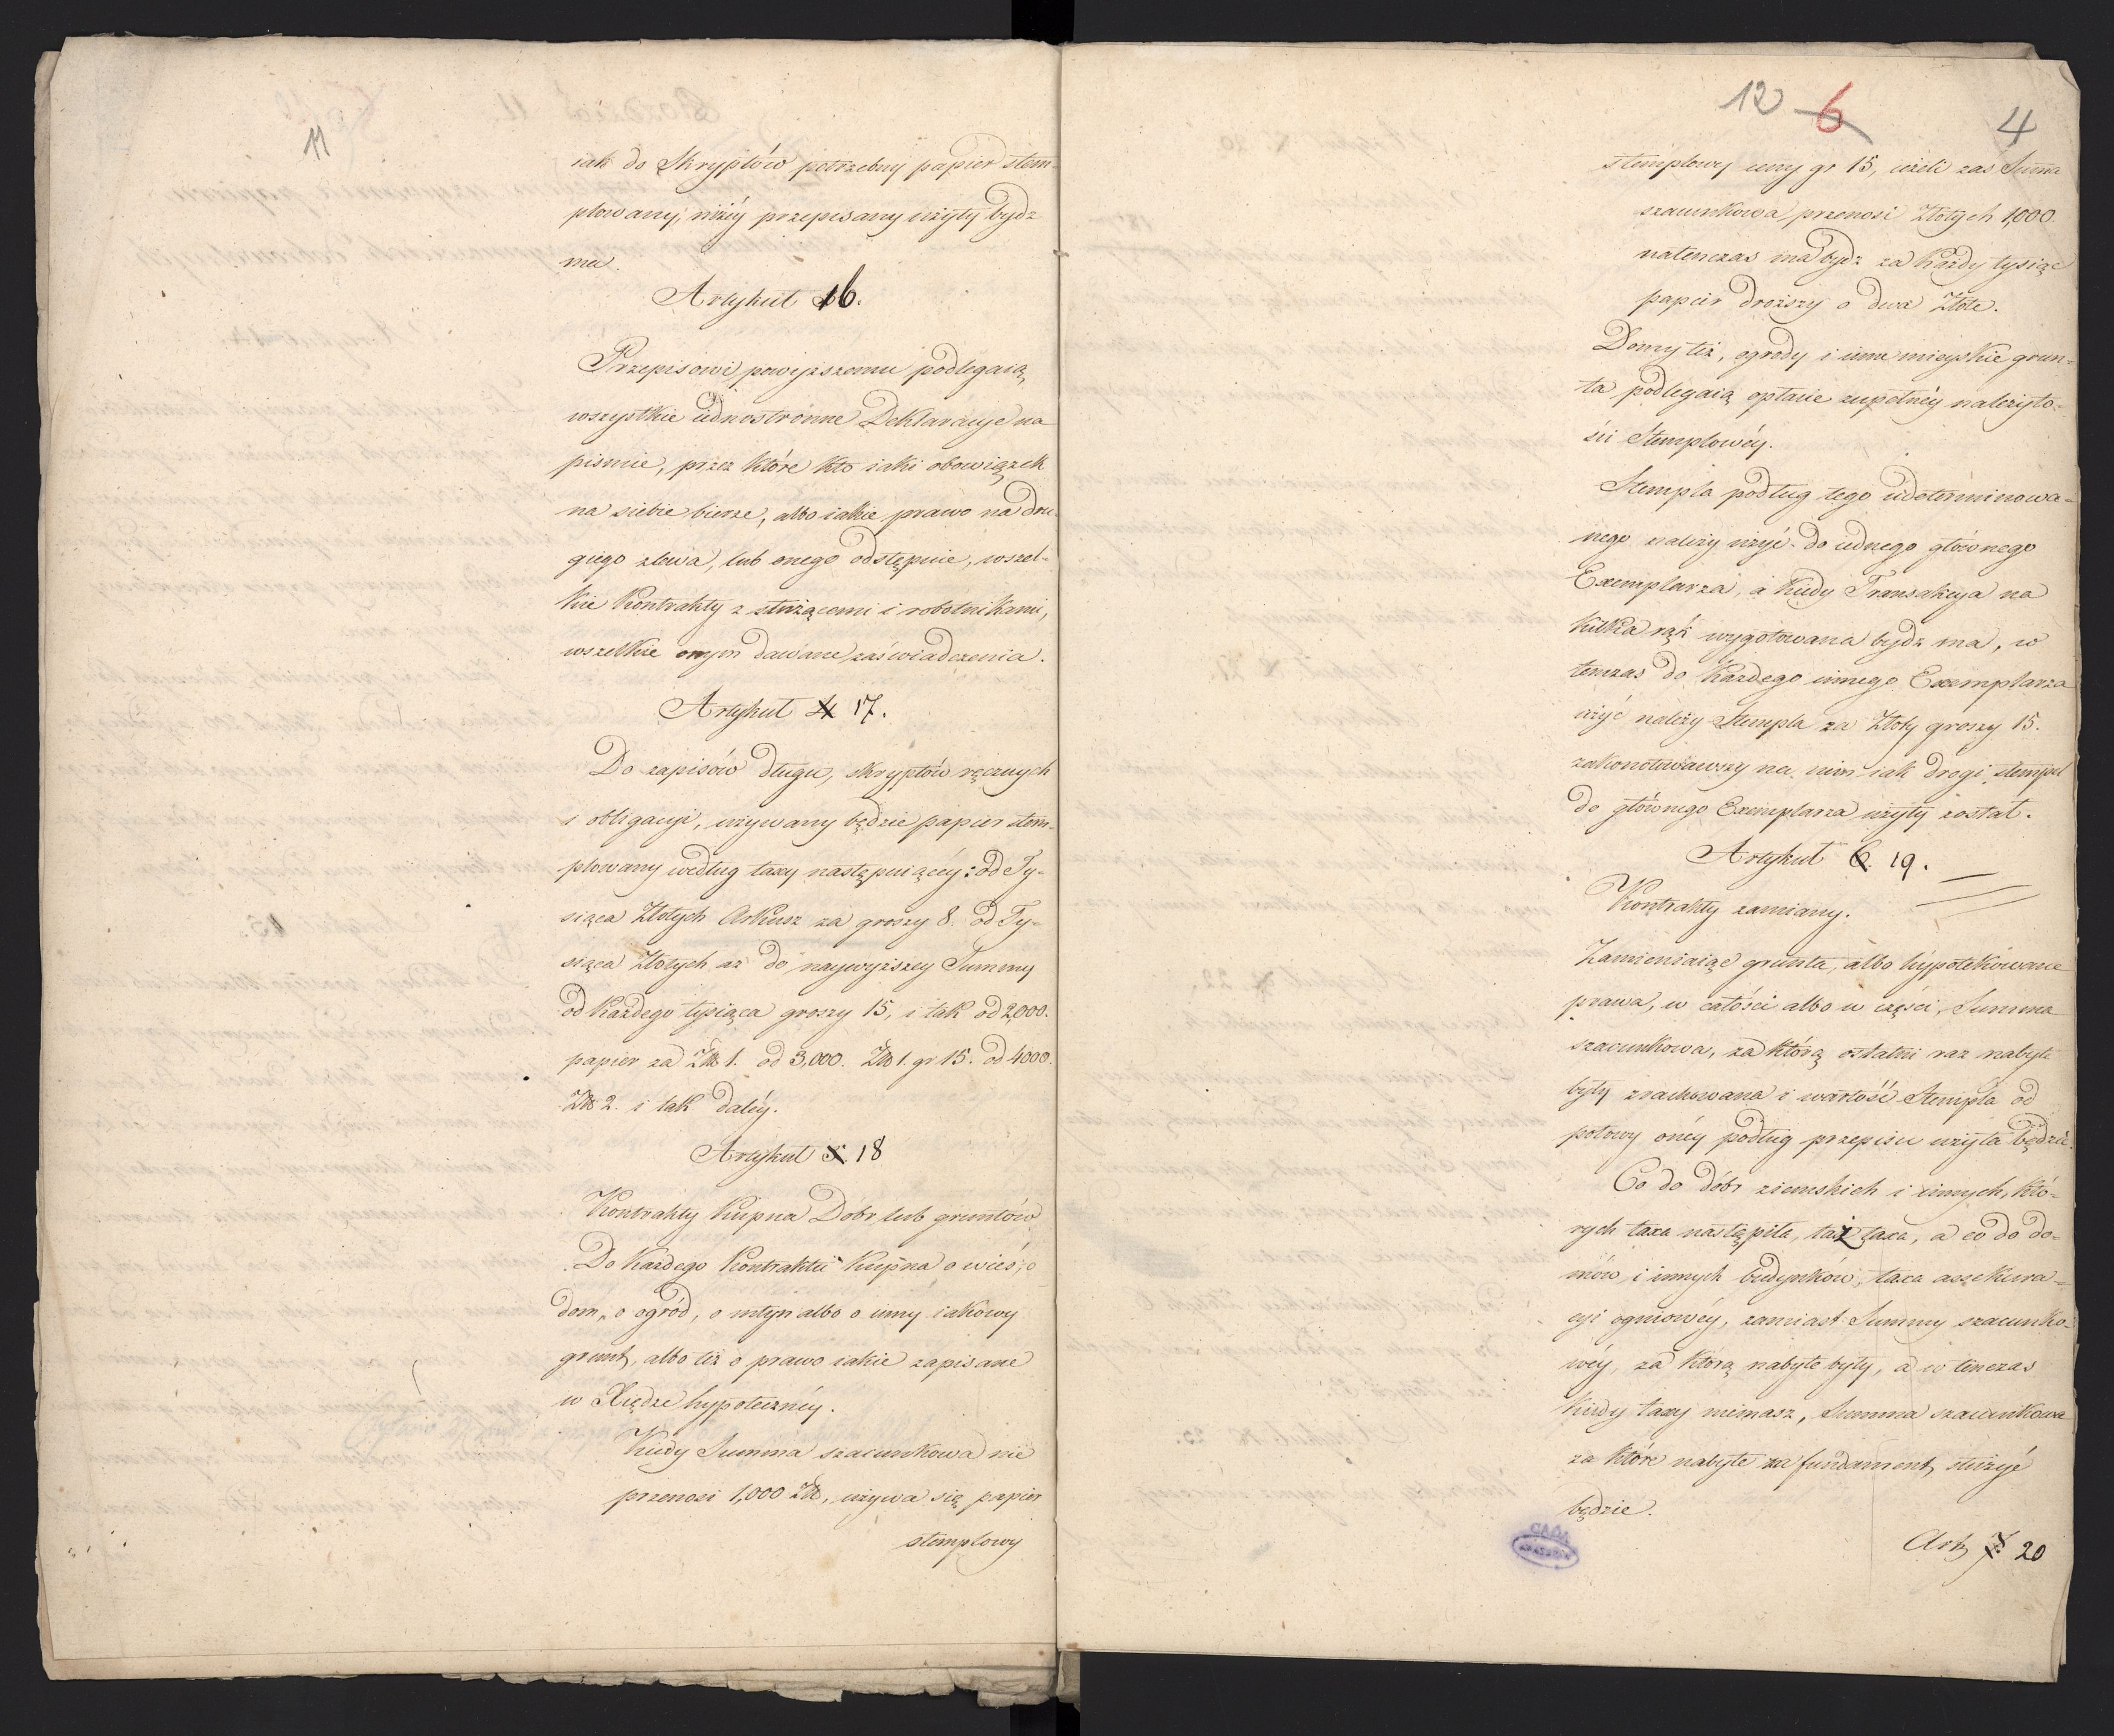 11
iak do Skryptów potrzebny papier stem-
plowany, niżéy przepisany użyty bydz
ma.
Artykuł 16.
Przepisowi powyższemu podlegaią,
wszystkie iednostronne Deklaracye na
pismie, przez które kto iaki obowiązek
na siebie bierze, albo iakie prawo na dru-
giego zlewa, lub onego odstępuie, wszel-
kie Kontrakty z służącemi i robotnikami,
wszelkie onym dawane zaświadczenia.
Artykuł 4 17.
Do zapisów długu, skryptów ręcznych
i obligacyi, używany będzie papier stem-
plowany według taxy następuiącéy: od Ty-
siąca Złotych Arkusz za groszy 8. od Ty-
siąca Złotych aż do naywyższey Summy
od Każdego tysiąca groszy 15, i tak od 2,000.
papier za Zło 1. od 3,000. Zło 1. gr 15. od 4000.
Zło 2. i tak daléy.
Artykuł 5. 18
Kontrakty Kupna Dóbr lub gruntów
Do Każdego Kontraktu Kupna o wieś, o
dom, o ogród, o młyn albo o inny iakowy
grunt, albo też o prawo iakie zapisane
w Xiędze hypotecznéy.
Kiedy Summa szacunkowa nie
przenosi 1,000 Zło, używa się papier
stemplowy
12 6 4
stemplowy ceny gr 15, ieżeli zas Summa
szacunkowa przenosi Złotych 1,000
natenczas ma bydz za Każdy tysiąc
papier droższy o dwa Złote.
Domy też, ogrody i inne mieyskie grun-
ta podlegaią opłacie zupełnéy należyto-
ści Stemplowéy.
Stempla podług tego udeterminowa-
nego należy użyć do iednego głównego
Exemplarza, a Kiedy Transakcya na
kilka rąk wygotowana bydz ma, w
tenczas do Każdego innego Exemplarza
użyć należy Stempla za Złoty groszy 15.
zakonotowawszy na nim iak drogi stempel
do głównego Exemplarza użyty został.
Artykuł 6. 19.
Kontrakty zamiany.
Zamieniaiąc grunta, albo hypotekowane
prawa, w całości albo w części, Summa
szacunkowa, za którą ostatni raz nabyte
były zrachowana i wartość Stempla od
połowy onéy podług przepisu użyta będzie.
Co do dóbr ziemskich i innych, któ-
rych taxa nastąpiła, taż taxa, a co do do-
mów i innych budynków, taxa assekura-
cyi ogniowéy, zamiast Summy szacunko-
wéy, za którą nabyte były, a w tenczas
Kiedy taxy niemasz, Summa szacunkowa
za które nabyte za fundament służyć
będzie.
Art. 7. 20